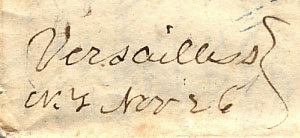 Versailles
N.Y Nov 26